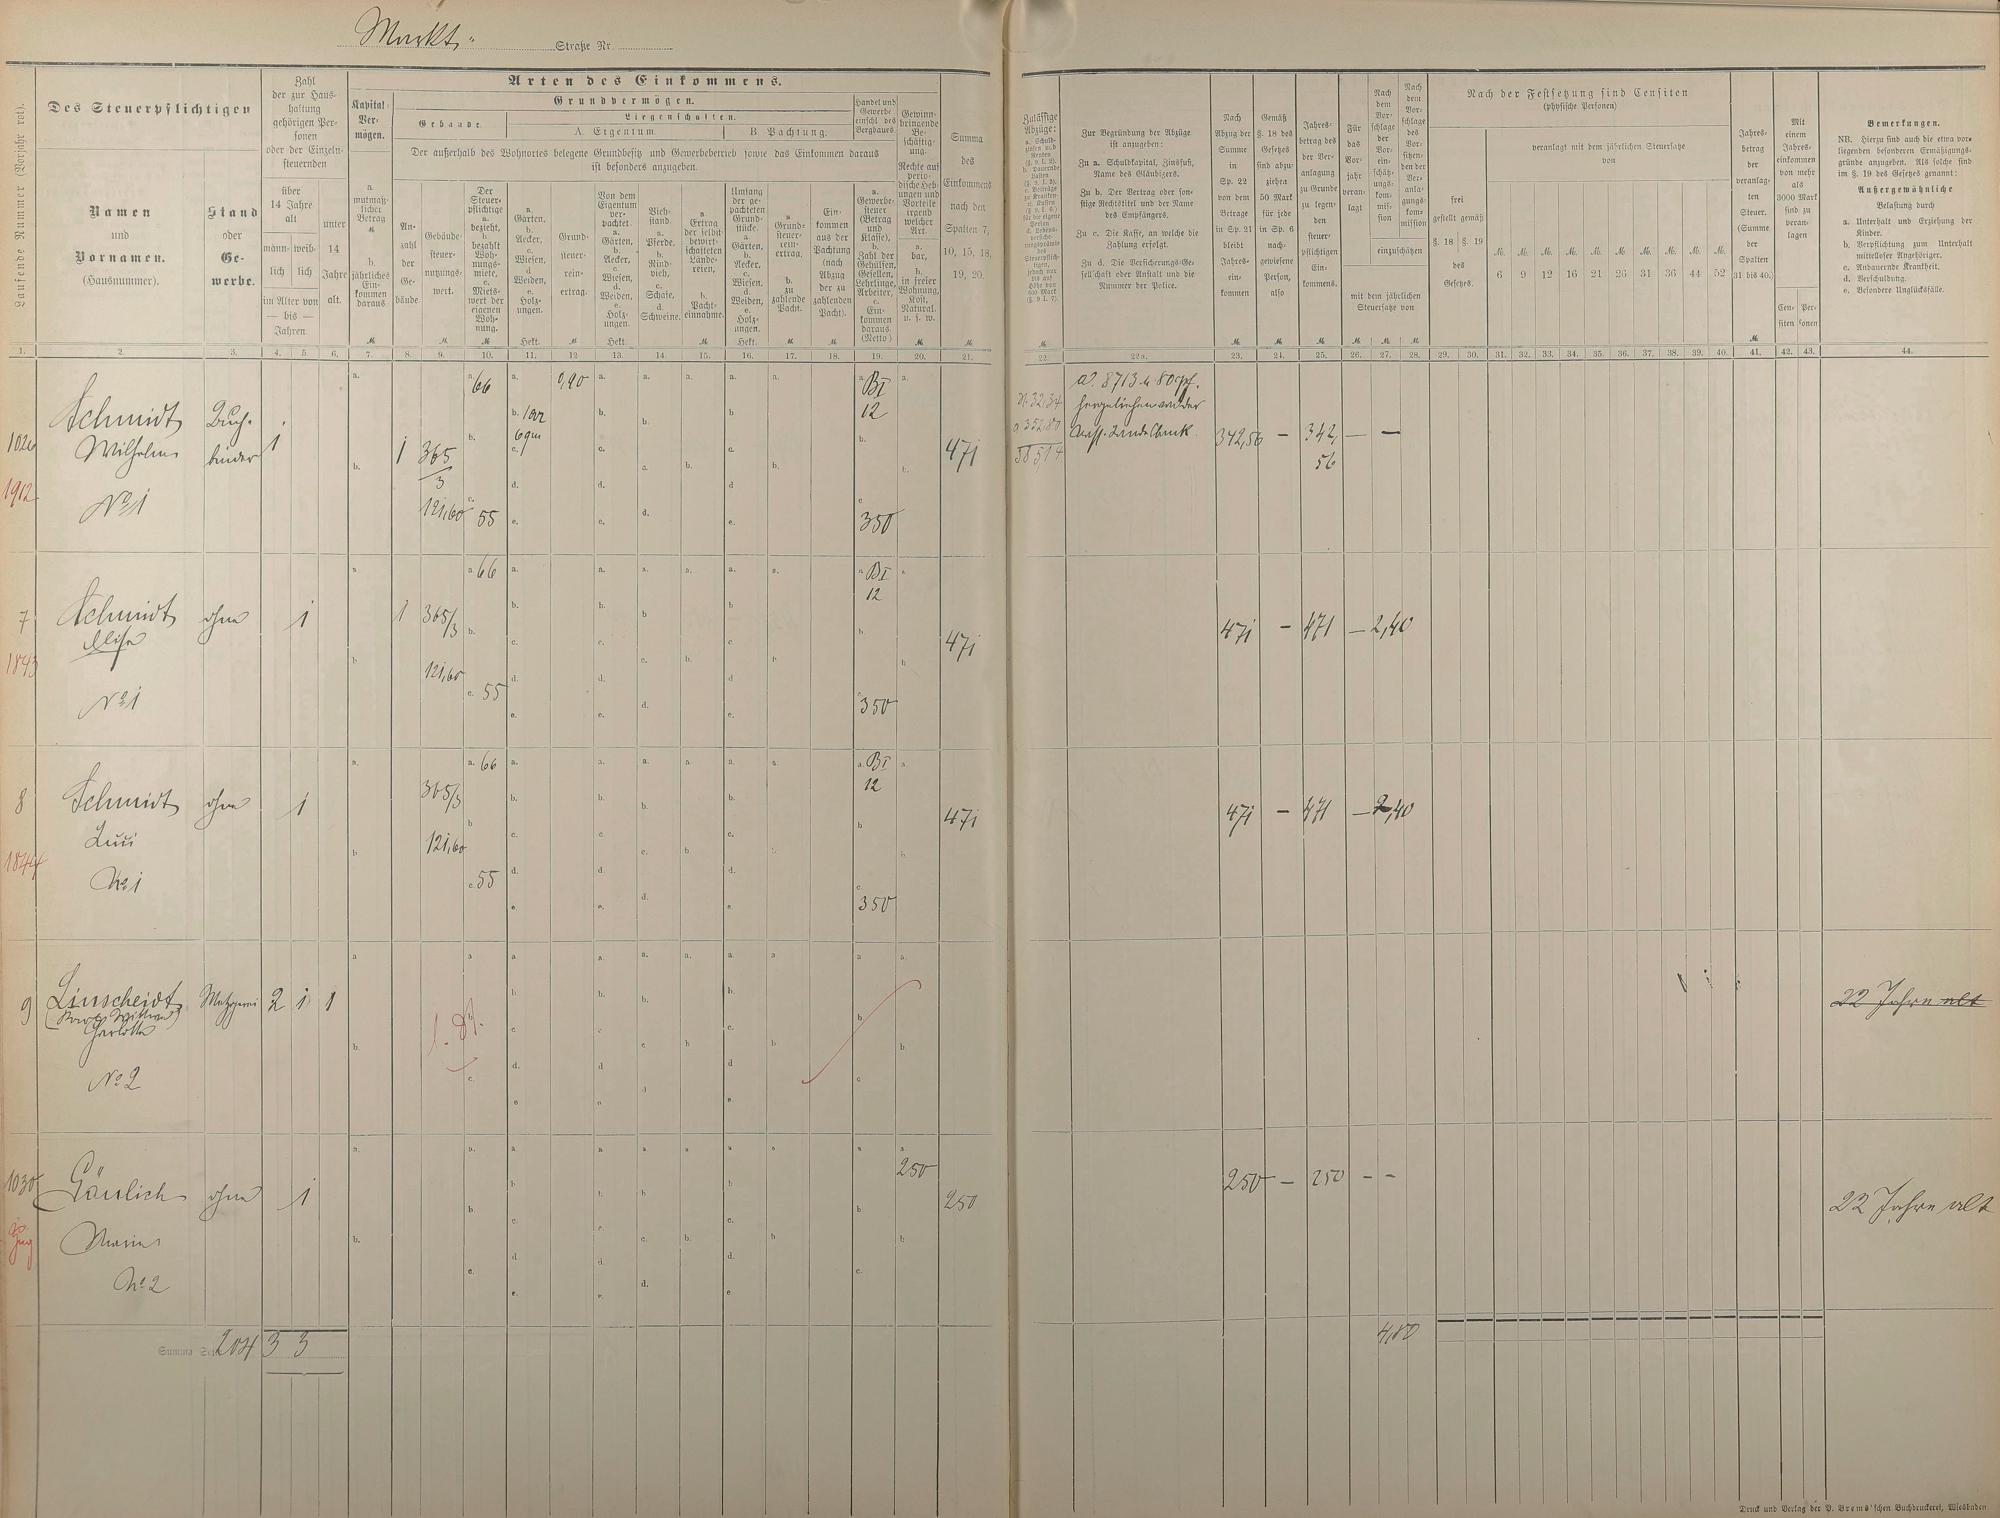 Markt-
Straße Nr.
Laufende Nummer (Vorjahr rot).
Des Steuerpflichtigen
Namen
und
Vornamen.
(Hausnummer).
Stand
oder
Ge-
werbe.
Zahl
der zur Haus-
haltung
gehörigen Per-
sonen
oder der Einzeln-
steuernden
über
14 Jahre
alt
männ-
lich
weib-
lich
im Alter von
— bis —
Jahren.
unter
14
Jahre
alt.
Arten des Einkommens.
Kapital-
Ver-
mögen.
a.
mutmaß-
licher
Betrag
b.
jährliches
Ein-
kommen
daraus
Grundvermögen.
Gebäude.
Liegenschaften.
A. Eigentum.
B. Pachtung.
Der außerhalb des Wohnortes belegene Grundbesitz und Gewerbebetrieb sowie das Einkommen daraus
ist besonders anzugeben.
An-
zahl
der
Ge-
bäude.
Gebäude-
steuer-
nutzungs-
wert.
Der
Steuer-
pflichtige
a.
bezieht,
b.
bezahlt
Woh-
nungs-
miete,
c.
Miets-
wert der
eigenen
Woh-
nung.
a.
Gärten,
b.
Aecker,
c.
Wiesen,
d.
Weiden,
e.
Holz-
ungen.
Hekt.
Grund-
steuer-
rein-
ertrag.
Von dem
Eigentum
ver-
pachtet.
a.
Gärten,
b.
Aecker,
c.
Wiesen,
d.
Weiden,
e.
Holz-
ungen.
Hekt.
Vieh-
stand.
a.
Pferde,
b.
Rind-
vieh,
c.
Schafe,
d.
Schweine.
a.
Ertrag
der selbst-
bewirt-
schafteten
Lände-
reien,
b.
Pacht-
einnahme.
Umfang
der ge-
pachteten
Grund-
stücke.
a.
Gärten,
b.
Aecker,
c.
Wiesen.
d.
Weiden,
e.
Holz-
ungen.
Hekt.
a.
Grund-
steuer-
rein-
ertrag,
b.
zu
zahlende
Pacht.
Ein-
kommen
aus der
Pachtung
(nach
Abzug
der zu
zahlenden
Pacht).
Handel und
Gewerbe
einschl des
Bergbaues.
a.
Gewerbe-
steuer
(Betrag
und
Klasse),
b.
Zahl der
Gehülfen,
Gesellen,
Lehrlinge,
Arbeiter,
c.
Ein-
kommen
daraus
(Netto)
Gewinn-
bringende
Be-
schäftig-
ung.
Rechte auf
perio-
dische Heb-
ungen und
Vorteile
irgend
welcher
Art.
a.
bar,
b.
in freier
Wohnung,
Kost,
Natural.
u. s. w.
Summa
des
Einkommens
nach den
Spalten 7,
10, 15, 18,
19, 20.
Zulässige
Abzüge:
Zur Begründung der Abzüge
ist anzugeben:
Zu a. Schuldkapital, Zinsfuß,
Name des Gläubigers.
Zu b. Der Vertrag oder son-
stige Rechtstitel und der Name
des Empfängers.
Zu c. Die Kasse, an welche die
Zahlung erfolgt.
Zu d. Die Versicherungs-Ge-
sellschaft oder Anstalt und die
Nummer der Police.
Nach
Abzug der
Summe
in
Sp. 22
von dem
Betrage
in Sp. 21
bleibt
Jahres-
ein-
kommen
Gemäß
§. 18 des
Gesetzes
sind abzu-
ziehen
50 Mark
für jede
in Sp. 6
nach-
gewiesene
Person,
also
Jahres-
betrag des
der Ver-
anlagung
zu Grunde
zu legen-
den
steuer-
pflichtigen
Ein-
kommens.
Für
das
Vor-
jahr
veran-
lagt
Nach
dem
Vor-
schlage
der
Vor-
ein-
schätz-
ungs-
kom-
mis-
sion
Nach
dem
Vor-
schlage
des
Vor-
sitzen-
den der
Ver-
anla-
gungs-
kom-
mission
einzuschätzen
mit dem jährlichen
Steuersatze von
Nach der Festsetzung sind Censiten
(physische Personen)
frei
gestellt gemäß
§. 18 §. 19
des
Gesetzes.
veranlagt mit dem jährlichen Steuersatze
von
6 9 12 16 21 26 31 36 44 52
Jahres-
betrag
der
veranlag-
ten
Steuer.
(Summe
der
Spalten
31 bis 40.)
Mit
einem
Jahres-
einkommen
von mehr
als
3000 Mark
sind zu
veran-
lagen
Cen-
siten
Per-
sonen
Bemerkungen.
NB. Hierzu sind auch die etwa vor-
liegenden besonderen Ermäßigungs-
gründe anzugeben. Als solche sind
im §. 19 des Gesetzes genannt:
Außergewöhnliche
Belastung durch
a. Unterhalt und Erziehung der
Kinder.
b. Verpflichtung zum Unterhalt
mittelloser Angehöriger.
c. Andauernde Krankheit.
d. Verschuldung.
e. Besondere Unglücksfälle.
1. 2. 3. 4. 5. 6. 7. 8. 9. 10. 11. 12 13. 14. 15. 16. 17. 18. 19. 20. 21. 22. 22a. 23. 24. 25. 26. 27. 28. 29. 30. 31. 32. 33. 34. 35. 36. 37. 38. 39. 40. 41. 42. 43. 44.
1026
1912
Schmidt
Wilhelm
No 1
Buch-
binder
1
1
365/3
121,60
66
55
0,90
BI
12
350
471
342,56 — 342,56 — —
7
1843
Schmidt
Elise
No 1
ohne
1
1
365/3
121,60
66
55
BI
12
350
471
471 — 471 — 2,40
8
1844
Schmidt
No 1
ohne
1
365/3
121,60
66
55
BI
12
350
471
471 — 471 — 2,40
9
Linscheidt
Charlotte
No 2
Metzgerei
2 1 1
22 Jahre alt
1030
Zug
Gäulich
Marie
No 2
ohne
1
250
250
250 — 250 — —
22 Jahre alt
Summa Seite 204 3 3
4,80
Druck und Verlag der P. Brems'schen Buchdruckerei, Wiesbaden